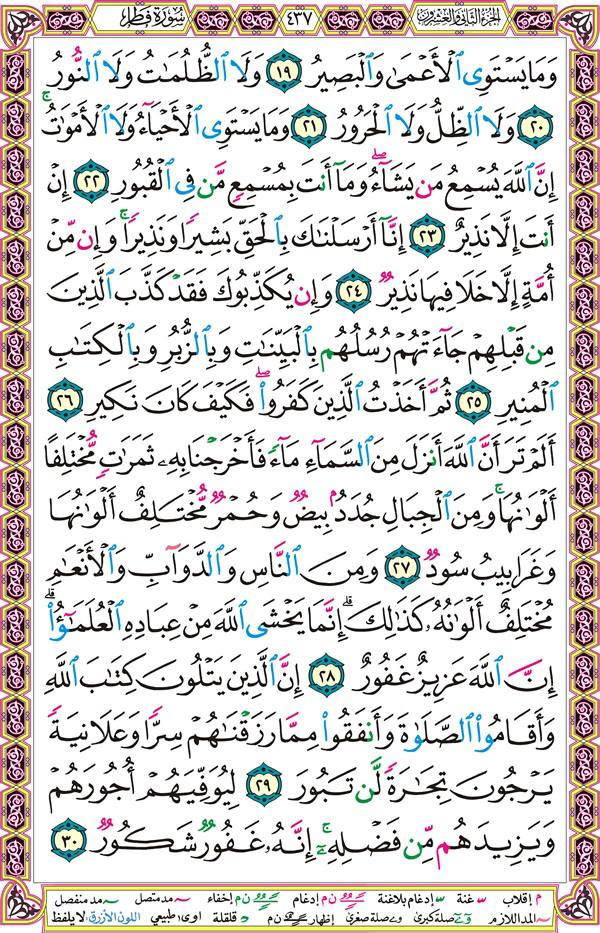 سُورَةُ فَاطِر
٤٣٧
الجزء الثاني والعشرون
وَمَا يَسْتَوِي ٱلْأَعْمَىٰ وَٱلْبَصِيرُ ١٩ وَلَا ٱلظُّلُمَٰتُ وَلَا ٱلنُّورُ
٢٠ وَلَا ٱلظِّلُّ وَلَا ٱلْحَرُورُ ٢١ وَمَا يَسْتَوِي ٱلْأَحْيَآءُ وَلَا ٱلْأَمْوَٰتُ ۚ
إِنَّ ٱللَّهَ يُسْمِعُ مَن يَشَآءُ ۖ وَمَآ أَنتَ بِمُسْمِعٍ مَّن فِي ٱلْقُبُورِ ٢٢ إِنْ
أَنتَ إِلَّا نَذِيرٌ ٢٣ إِنَّآ أَرْسَلْنَٰكَ بِٱلْحَقِّ بَشِيرًا وَنَذِيرًا ۚ وَإِن مِّنْ
أُمَّةٍ إِلَّا خَلَا فِيهَا نَذِيرٌ ٢٤ وَإِن يُكَذِّبُوكَ فَقَدْ كَذَّبَ ٱلَّذِينَ
مِن قَبْلِهِمْ جَآءَتْهُمْ رُسُلُهُم بِٱلْبَيِّنَٰتِ وَبِٱلزُّبُرِ وَبِٱلْكِتَٰبِ
ٱلْمُنِيرِ ٢٥ ثُمَّ أَخَذْتُ ٱلَّذِينَ كَفَرُوا۟ ۖ فَكَيْفَ كَانَ نَكِيرِ ٢٦
أَلَمْ تَرَ أَنَّ ٱللَّهَ أَنزَلَ مِنَ ٱلسَّمَآءِ مَآءً فَأَخْرَجْنَا بِهِۦ ثَمَرَٰتٍ مُّخْتَلِفًا
أَلْوَٰنُهَا ۚ وَمِنَ ٱلْجِبَالِ جُدَدٌۢ بِيضٌ وَحُمْرٌ مُّخْتَلِفٌ أَلْوَٰنُهَا
وَغَرَابِيبُ سُودٌ ٢٧ وَمِنَ ٱلنَّاسِ وَٱلدَّوَآبِّ وَٱلْأَنْعَٰمِ
مُخْتَلِفٌ أَلْوَٰنُهُۥ كَذَٰلِكَ ۗ إِنَّمَا يَخْشَى ٱللَّهَ مِنْ عِبَادِهِ ٱلْعُلَمَٰٓؤُا۟ ۗ
إِنَّ ٱللَّهَ عَزِيزٌ غَفُورٌ ٢٨ إِنَّ ٱلَّذِينَ يَتْلُونَ كِتَٰبَ ٱللَّهِ
وَأَقَامُوا۟ ٱلصَّلَوٰةَ وَأَنفَقُوا۟ مِمَّا رَزَقْنَٰهُمْ سِرًّا وَعَلَانِيَةً
يَرْجُونَ تِجَٰرَةً لَّن تَبُورَ ٢٩ لِيُوَفِّيَهُمْ أُجُورَهُمْ
وَيَزِيدَهُم مِّن فَضْلِهِۦٓ ۚ إِنَّهُۥ غَفُورٌ شَكُورٌ ٣٠
م إقلاب س غنة س إدغام بلاغنة ن م إدغام ن م إخفاء ~ مد متصل ~ مد منفصل
~ المد اللازم و ے صلة كبرى و ے صلة صغرى إظهار ن م قلقلة اوى؛ طبيعي اللون الأزرق: لا يلفظ